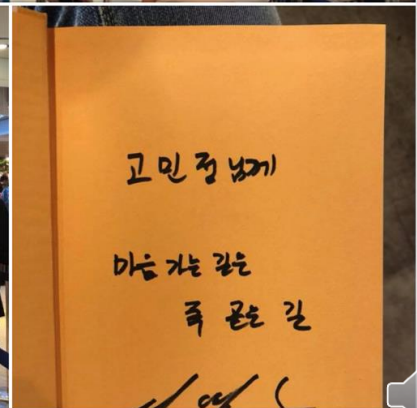 고민정 님께
마음 가는 길은
죽 곧은 길